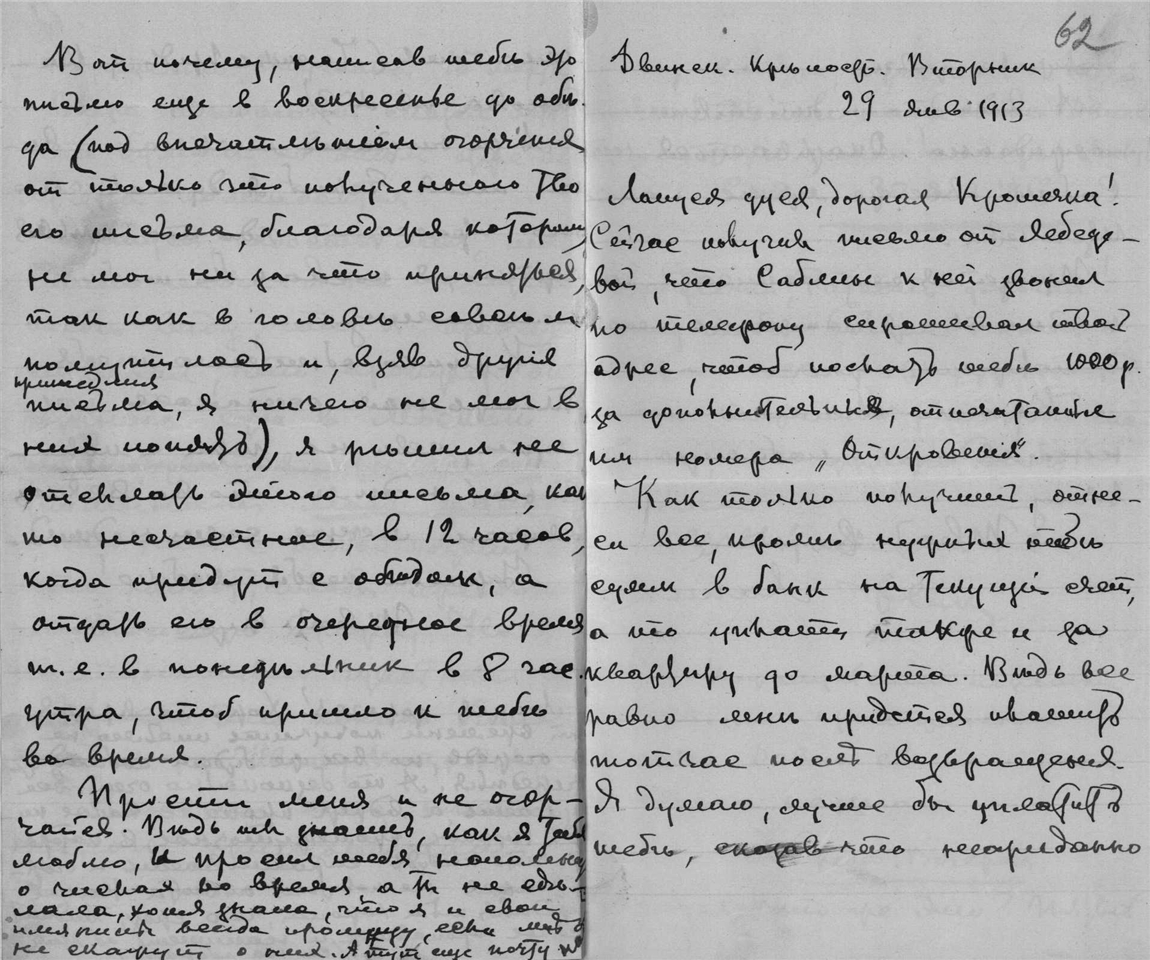 Вот почему, написав тебѣ это
письмо еще в воскресенье до обѣ-
да (под впечатлѣнием огорченія
от только что полученного Тво
его письма, благодаря которому
не мог ни за что приняться,
так как в головѣ совсѣм
помутилось и, взяв другія
пришедшія
письма, я ничего не мог в
них понять), я рѣшил не
отсылать этого письма, как
то несчастное, в 12 часов,
когда придут с обѣдом, а
отдать его в очередное время
т.е. в понедѣльник в 8 час.
утра, чтоб пришло к тебѣ
во время.
Прости меня и не огор-
чайся. Вѣдь ты знаешь, как я Тебя
люблю, и просил тебя напомнить
о числах во время, а Ты не сдѣ-
лала, хотя знала, что я и свои
имянины всегда пропущу, если мнѣ
не скажут о них. А тут еще почту
62
Двинск. Крѣпость. Вторник
29 янв 1913
Лапуся дуся, дорогая Крошечка!
Сейчас получил письмо от Лебеде-
вой, что Саблин к ней звонил
по телефону спрашивал твой
адрес, чтоб послать тебѣ 1000 р.
за дополнительныя, отпечатанія
им номера „Откровенія".
Как только получишь, отне-
си все, кромѣ нужных тебѣ
сумм в банк на Текущій счет,
а то уплати также и за
квартиру до марта. Вѣдь все
равно мнѣ придется платить
тотчас послѣ возвращенія.
Я думаю, лучше бы уплатить
тебѣ, сказав что неожиданно